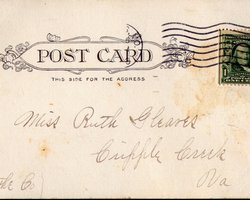 POST CARD
THIS SIDE FOR THE ADDRESS
Miss Ruth Gleaves
Cripple Creek
Va